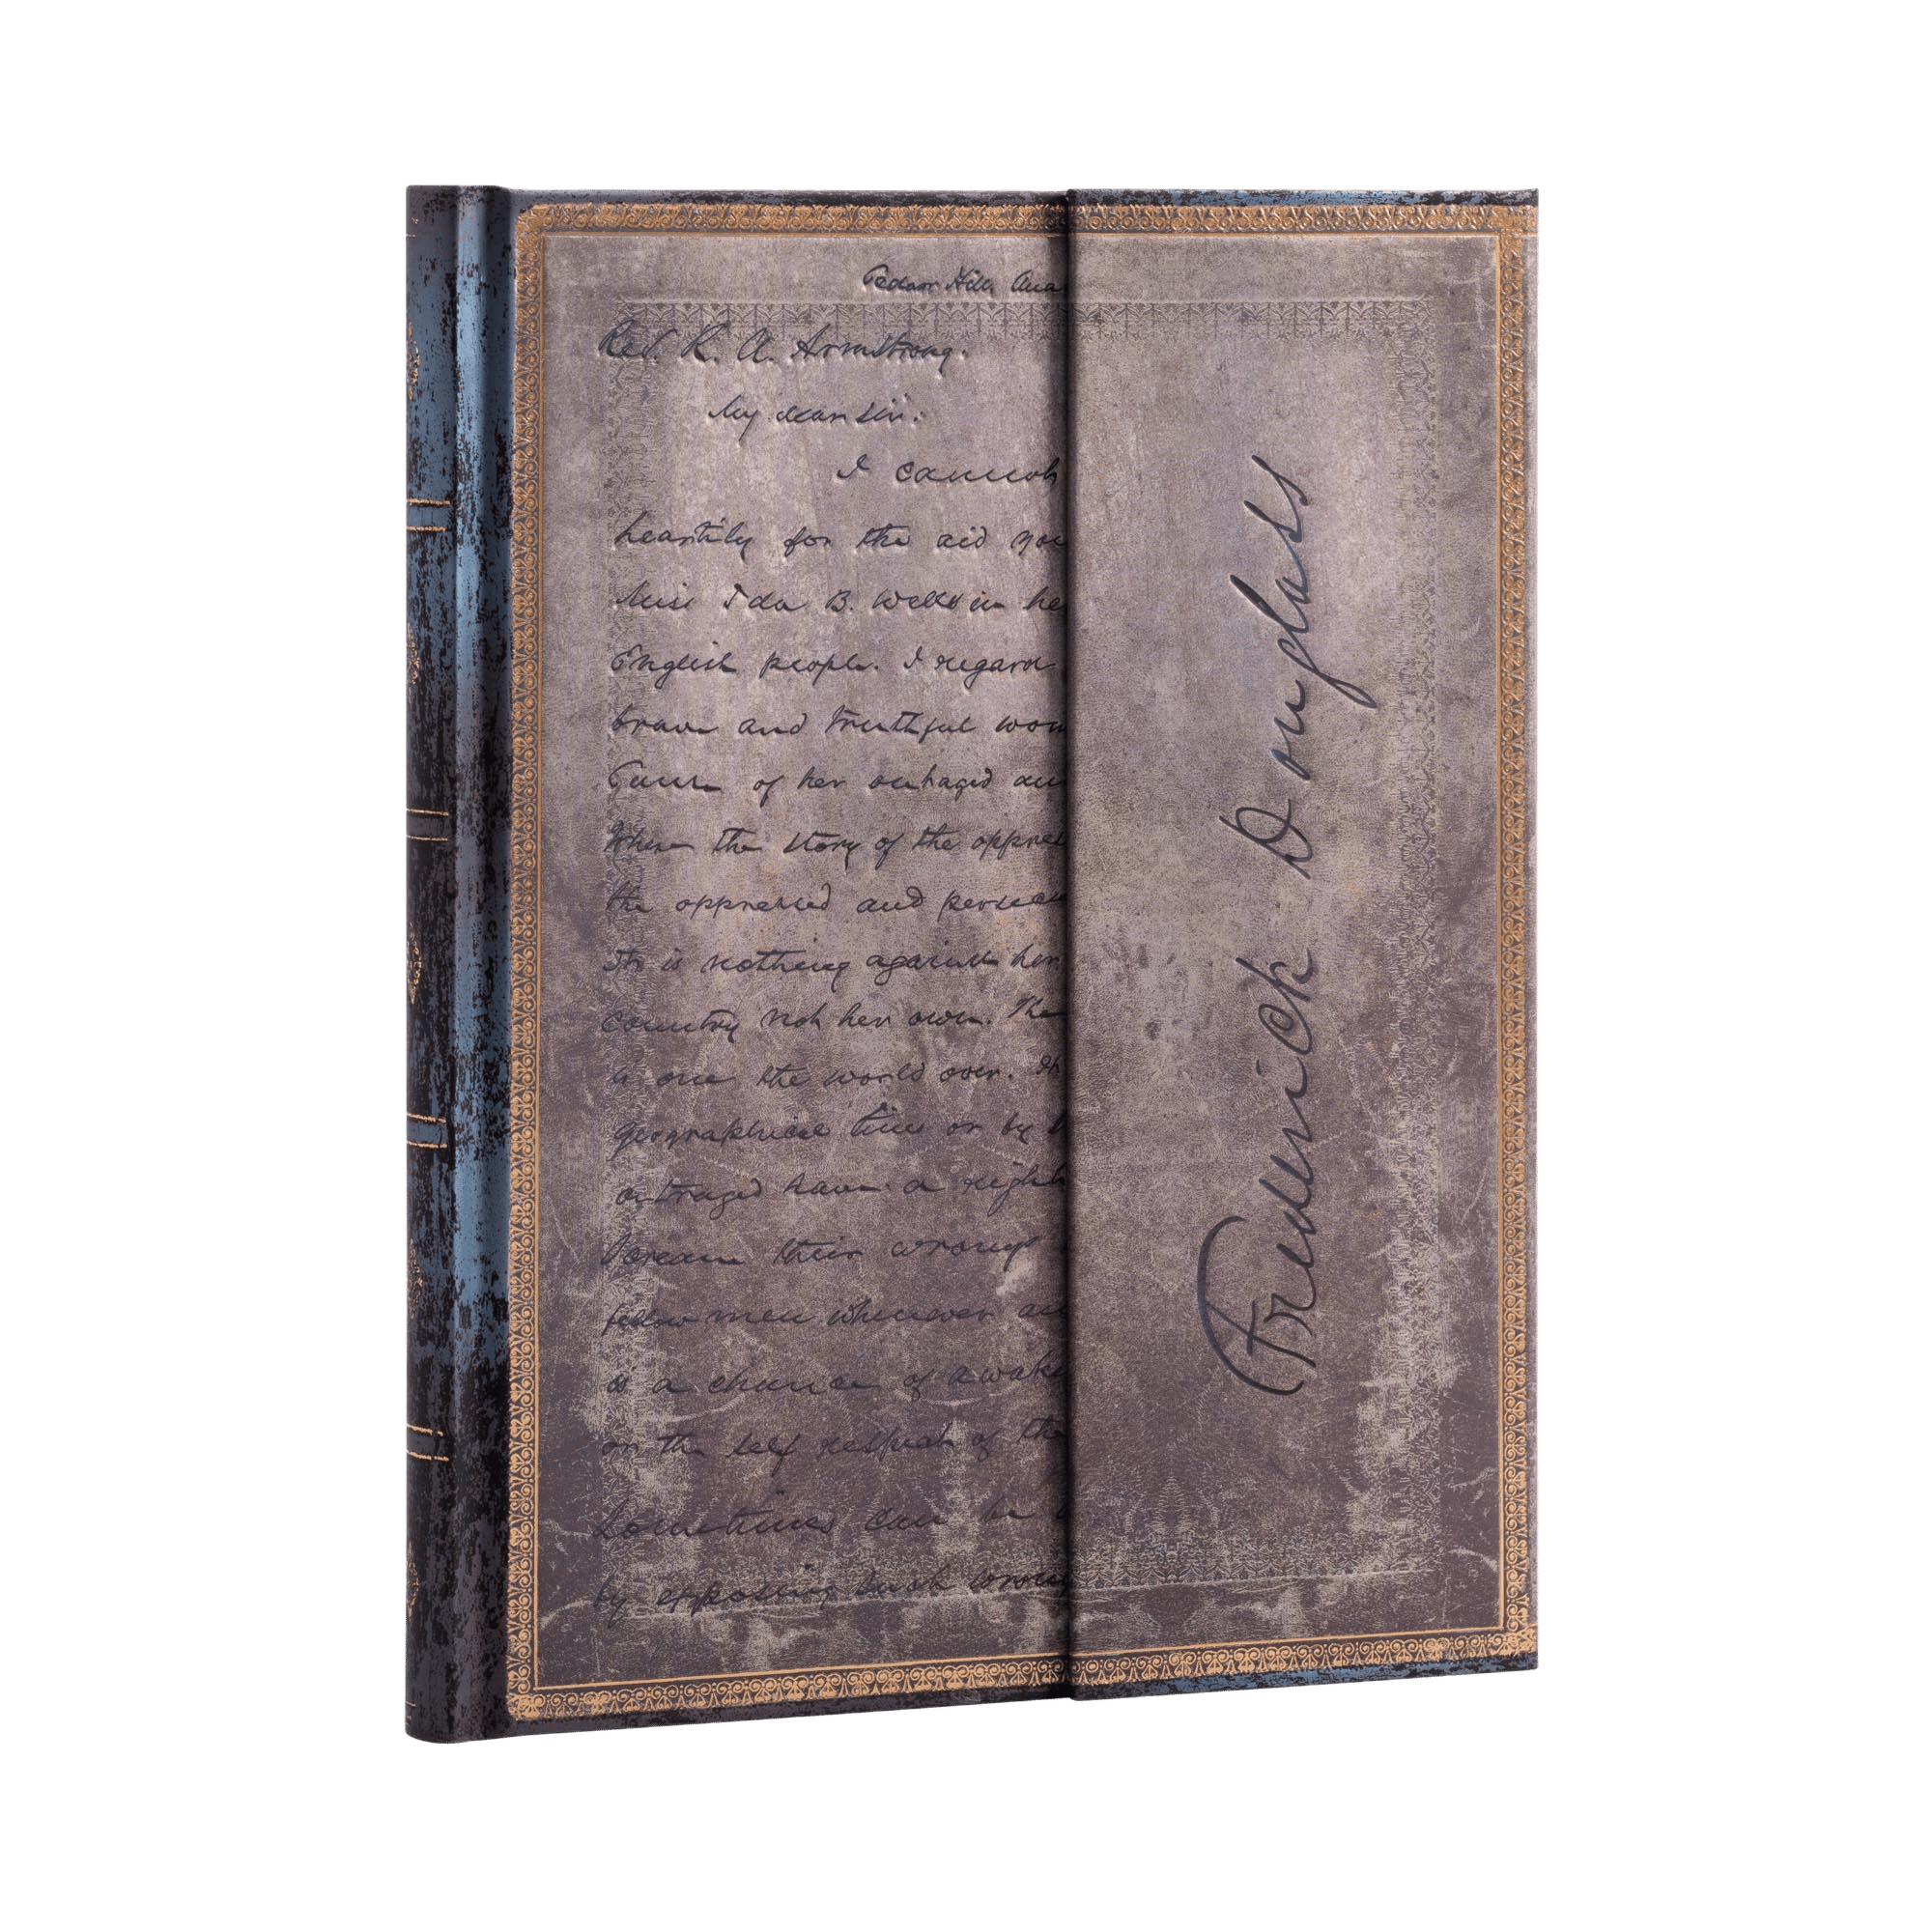 Cedar Hill, Ana
Rev. R. A. Armstrong.
My dear Sir:
I cannot
heartily for the aid you
Miss Ida B. Wells in he
English people. I regard
brave and truthful wom
Cause of her outraged an
Where the story of the oppres
the oppressed and persecu
It is nothing against her
country not her own. The
is one the world over.
geographical lines or by
outraged have a right
their wrongs
fellow men wherever an
is a chance of awake
or the self respect of the
Sometimes can be
by opposing such wrong
Frederick Douglass